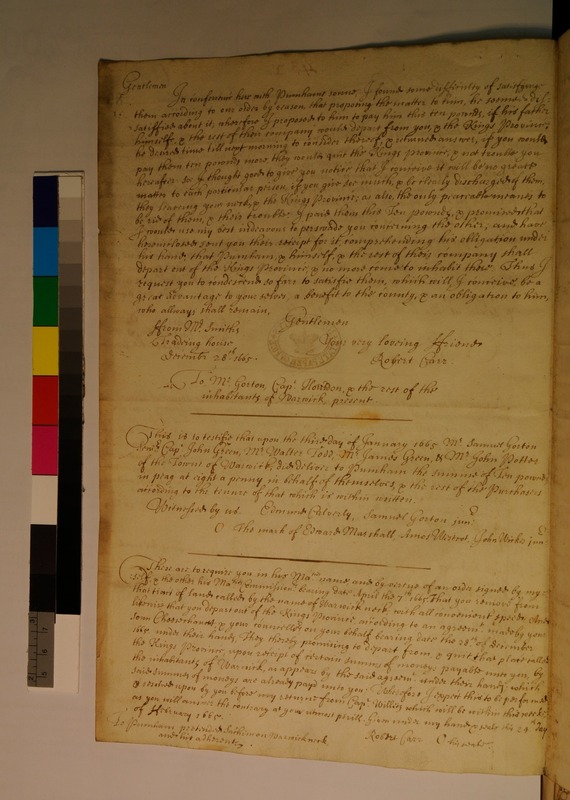 Gentlemen
In conference here with Pumhams sonne, I found some difficulty of satisfying
them according to our order by reason that proposing the matter to him, he seemed
satisfied about it, wherefore I proposed to him to pay him this ten pounds, if his father
himselfe, & the rest of their company would depart from you, & the Kings Province
he desired time till next morning to consider thereof, & returned answer, if you would
pay them ten pounds more they would quit the Kings province, & not trouble you
hereafter. So I thought good to give you notice that I conceive it will be no great
matter to each particular person, if you give soe much, & be clearly discharged of them,
they leaving you, & the Kings Province; as also the only peaceable meanes to
be rid of them, & their trouble. I paid them this Ten pounds, & promised that
I would use my best indeavour to perswade you concerning the other, and have
here inclosed sent you their receipt for it comprehending his obligation under
his hand, that Pumham, & himselfe, & the rest of their company shall
depart out of the Kings Province, & no more come to inhabit there. Thus I
request you to condescend so far to satisfie them, which will, I conceive, be a
great advantage to your selves, a benefit to the county, & an obligation to him,
who allways shall remain,
Gentlemen
ffrom Mr. Smiths
Your very loveing ffriend
Tradeing house
Robert Carr
Decembr 28th 1665.
To Mr. Gorton, Capt. Howlden, & the rest of the
inhabitants of Warwick, present.
This is to testifie that upon the third day of January 1665 Mr. Samuel Gorton
Senr. Capt. John Green, Mr. Walter Todd, Mr. James Green, & Mr. John Potter
of the Towne of Warwick, did deliver to Pumham the summe of Ten pounds
in peag at eight a penny in behalf of themselves, & the rest of the Purchasers
according to the tenure of that which is within written.
Witnessed by us. Edmund Calverly, Samuel Gorton junr.
O The mark of Edward Marshall, Amos Westcot, John Wickes junr
These are to require you in his Maties name, and by vertue of an order signed by my
selfe & the other his Maties Commissionrs bearing date April the 7th 1665 that you remove from
that tract of land called by the name of Warwick neck with all convenient speed. And
likewise that you depart out of the Kings Province according to an agreemt. made by your
sonn Cheesechamut, & your councellor on your behalf bearing date the 28th of Decembr
1665. under their hands. They thereby promising to depart from & quit that place called
the Kings Province, upon receipt of certain summs of moneys payable unto you, by
the inhabitants of Warwick, as appears by the said agreemt. under their hands, which
said summs of moneys are already paid unto you. Wherefore I expect that to be performed
& resolved upon by you before my returne from Capt. Willets which will be within this week
as you will answer the contrary at your utmost perill. Given under my hand & seale this 24th day
of ffebruary 1665.
Robert Carr
To Pumham pretended Sachim on Warwick neck
and his adherents